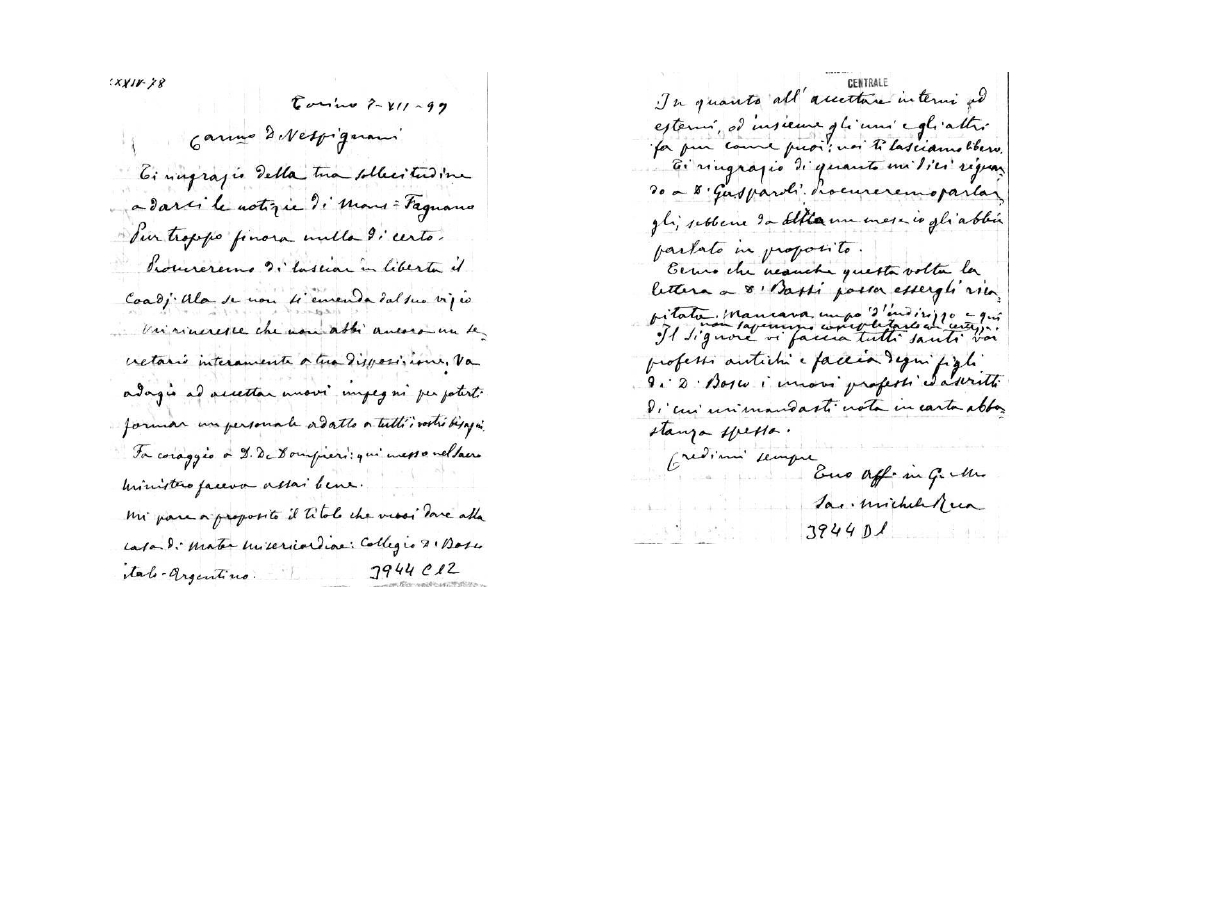 XXIV-78
Torino 7-XII-97
Carmo D. Vespignani
Ti ringrazio della tua sollecitudine
a darci le notizie di Mons= Fagnano
Pur troppo finora nulla di certo.
Procureremo di lasciar in libertà il
Coadj. Ula se non si emenda dal suo vizio
Mi rincresce che non abbi ancora un se-
cretario interamente a tua disposizione. Va
adagio ad accettar nuovi impegni per poterti
formar un personale adatto a tutti i vostri bisogni.
Fa coraggio a D. De Dompieri: qui messo nel sacro
Ministero faceva assai bene.
Mi pare a proposito il titolo che vuoi dare alla
casa di Mater Misericordiae: Collegio D. Bosco
italo-Argentino.
3944 C12
CENTRALE
In quanto all' accettare interni od
esterni, od insieme gli uni e gli altri
fa pur come puoi; noi ti lasciamo libero.
Ti ringrazio di quanto mi dici riguar-
do a D. Gasparoli. Procureremo parlar
gli, sebbene da un mese io gli abbia
parlato in proposito.
Temo che neanche questa volta la
lettera a D. Bassi possa essergli rica-
pitata. Mancava un po' d'indirizzo e qui
non sapemmo completarlo con certezza
Il Signore vi faccia tutti santi voi
professi antichi e faccia degni figli
di D. Bosco i nuovi professi ed ascritti
di cui mi mandasti nota in carta abba-
stanza spessa.
Credimi sempre
Tuo aff. in G. e M.
Sac. Michele Rua
3944 D1